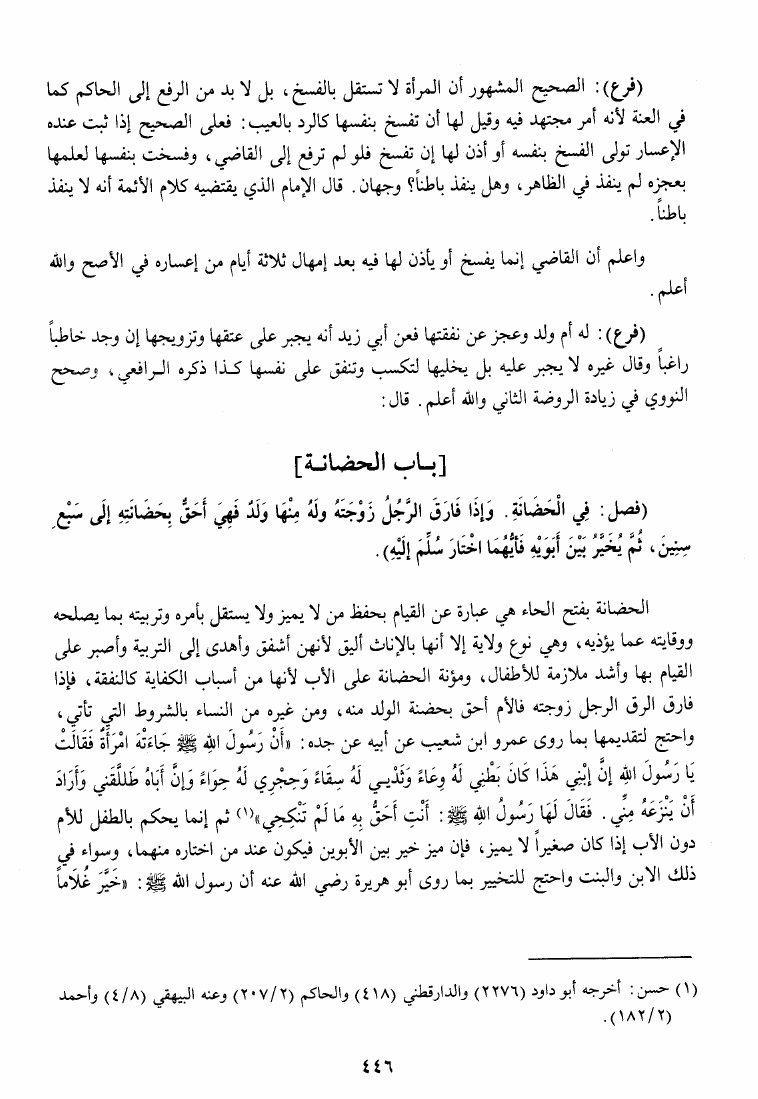 (فرع): الصحيح المشهور أن المرأة لا تستقل بالفسخ، بل لا بد من الرفع إلى الحاكم كما
في العنة لأنه أمر مجتهد فيه وقيل لها أن تفسخ بنفسها كالرد بالعيب: فعلى الصحيح إذا ثبت عنده
الإعسار تولى الفسخ بنفسه أو أذن لها إن تفسخ فلو لم ترفع إلى القاضي، وفسخت بنفسها لعلمها
بعجزه لم ينفذ في الظاهر، وهل ينفذ باطناً؟ وجهان. قال الإمام الذي يقتضيه كلام الأئمة أنه لا ينفذ
باطناً.
واعلم أن القاضي إنما يفسخ أو يأذن لها فيه بعد إمهال ثلاثة أيام من إعساره في الأصح والله
أعلم.
(فرع): له أم ولد وعجز عن نفقتها فعن أبي زيد أنه يجبر على عتقها وتزويجها إن وجد خاطباً
راغباً وقال غيره لا يجبر عليه بل يخليها لتكسب وتنفق على نفسها كذا ذكره الرافعي، وصحح
النووي في زيادة الروضة الثاني والله أعلم. قال:
[باب الحضانة]
(فصل: فِي الْحَضَانَةِ. وَإِذَا فَارَقَ الرَّجُلُ زَوْجَتَهُ ولَهُ مِنْهَا وَلَدٌ فَهِيَ أَحَقُّ بِحَضَانَتِهِ إِلَى سَبْعِ
سِنِينَ، ثُمَّ يُخَيَّرُ بَيْنَ أَبَوَيْهِ فَأَيُّهُمَا اخْتَارَ سُلِّمَ إِلَيْهِ).
الحضانة بفتح الحاء هي عبارة عن القيام بحفظ من لا يميز ولا يستقل بأمره وتربيته بما يصلحه
ووقايته عما يؤذيه، وهي نوع ولاية إلا أنها بالإناث أليق لأنهن أشفق وأهدى إلى التربية وأصبر على
القيام بها وأشد ملازمة للأطفال، ومؤنة الحضانة على الأب لأنها من أسباب الكفاية كالنفقة، فإذا
فارق الرق الرجل زوجته فالأم أحق بحضنة الولد منه، ومن غيره من النساء بالشروط التي تأتي،
واحتج لتقديمها بما روى عمرو ابن شعيب عن أبيه عن جده: «أَنْ رَسُولَ الله ﷺ جَاءَتْهُ امْرَأَةٌ فَقَالَتْ
يَا رَسُولَ اللهِ إِنَّ إِبْنِي هَذَا كَانَ بَطْنِي لَهُ وِعَاءً وَثَدْيِي لَهُ سِقَاءً وَحِجْرِي لَهُ حِوَاءً وَإِنَّ أَبَاهُ طَلَّقَنِي وَأَرَادَ
أَنْ يَنْزَعَهُ مِنِّي. فَقَالَ لَهَا رَسُولُ اللهِ ﷺ: أَنْتِ أَحَقُّ بِهِ مَا لَمْ تَنْكِحِي»(١) ثم إنما يحكم بالطفل للأم
دون الأب إذا كان صغيراً لا يميز، فإن ميز خير بين الأبوين فيكون عند من اختاره منهما، وسواء في
ذلك الابن والبنت واحتج للتخيير بما روى أبو هريرة رضي الله عنه أن رسول الله ﷺ: «خَيَّرَ غُلَاماً
(١) حسن: أخرجه أبو داود (٢٢٧٦) والدارقطني (٤١٨) والحاكم (٢/٢٠٧) وعنه البيهقي (٨/٤) وأحمد
(٢/١٨٢).
٤٤٦